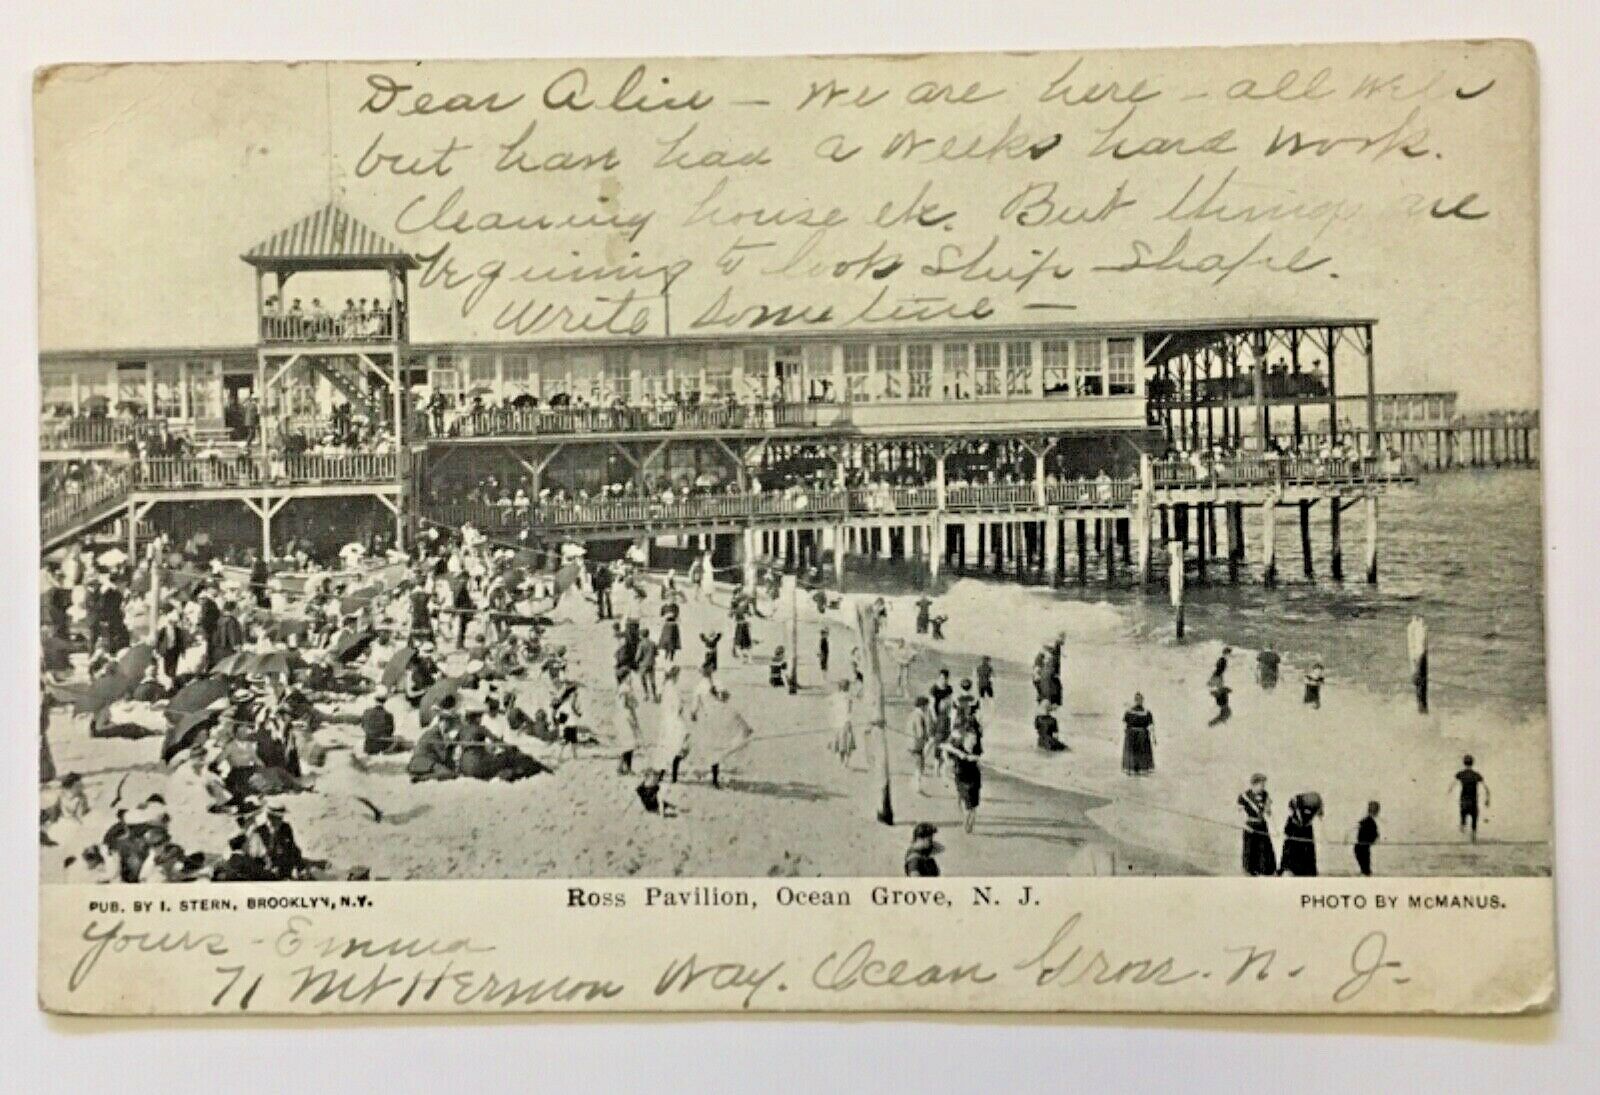 Dear Alice — We are here — all well
but have had a weeks hard work.
Cleaning house etc. But things are
beginning to look ship-shape.
Write sometime —
PUB. BY I. STERN, BROOKLYN, N.Y.
Ross Pavilion, Ocean Grove, N. J.
PHOTO BY McMANUS.
Yours - Emma
71 Mt Hermon Way. Ocean Grove. N. J.